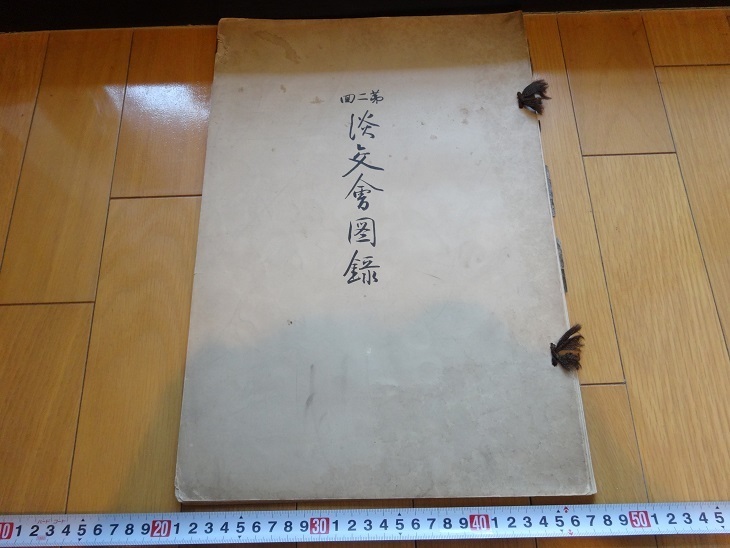 第二回
淡交會図録
10 1 2 3 4 5 6 7 8 9 20 1 2 3 4 5 6 7 8 9 30 1 2 3 4 5 6 7 8 9 40 1 2 3 4 5 6 7 8 9 50 1 2 3 4 5